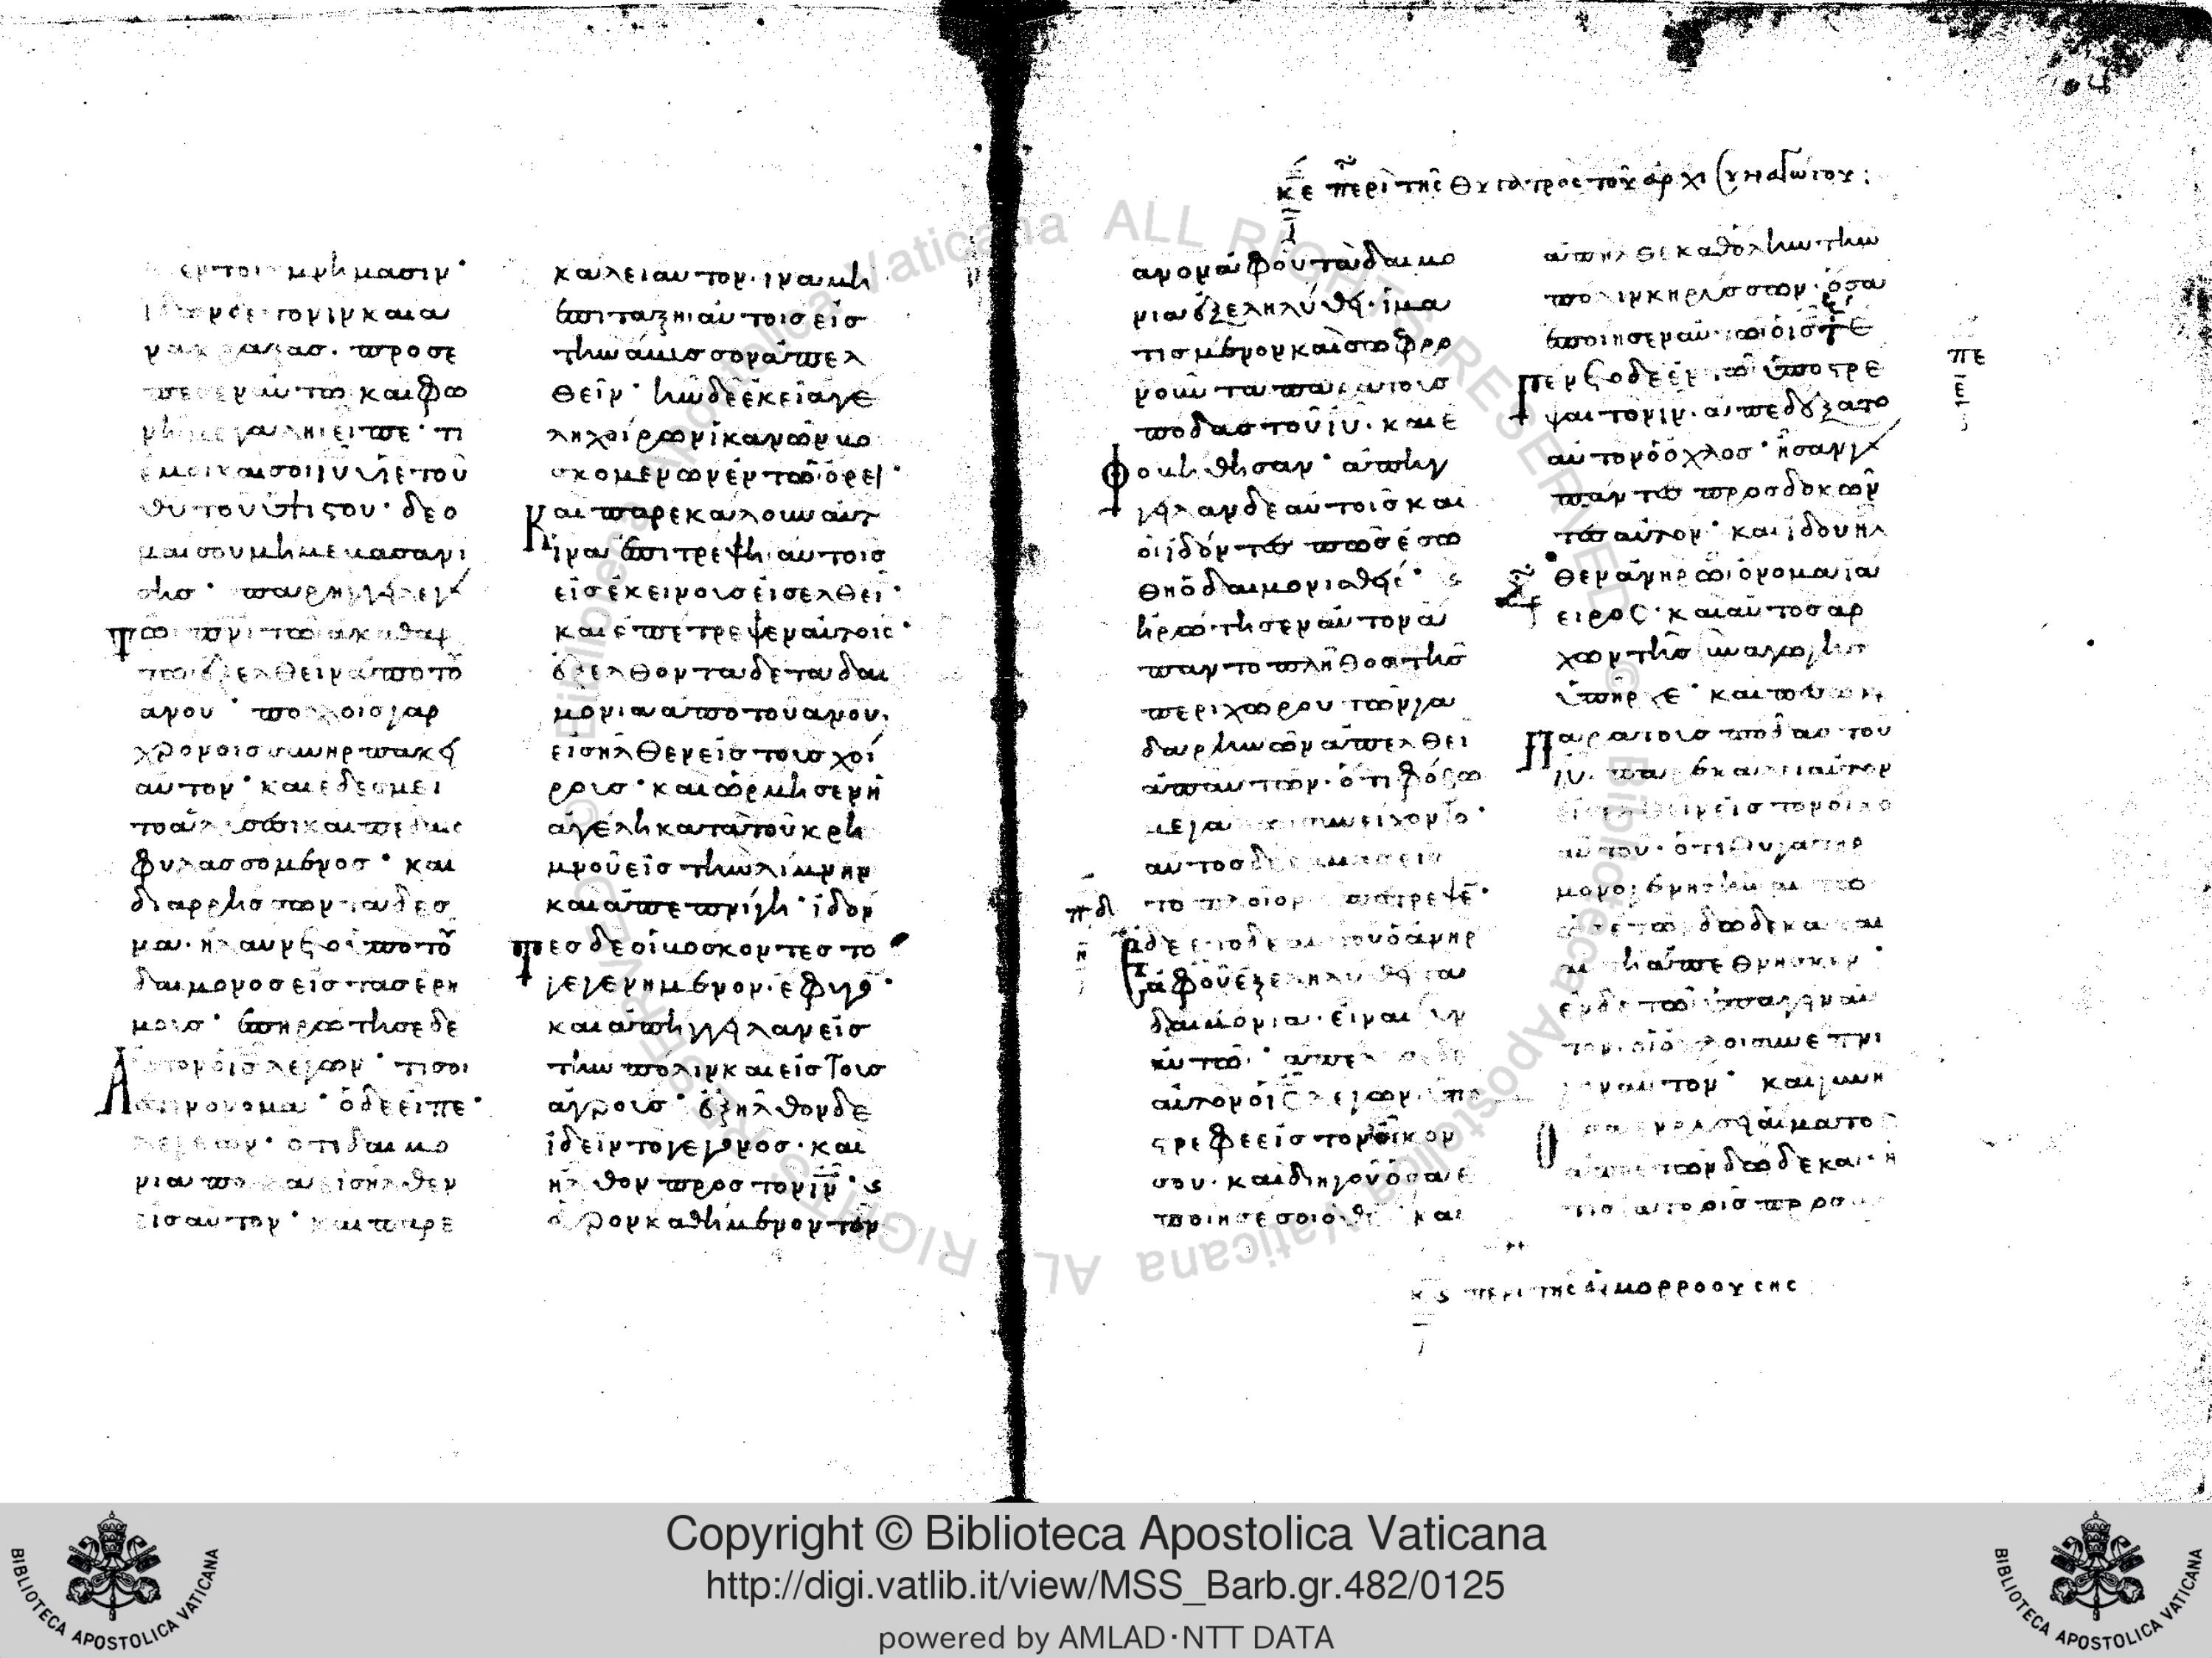 εν τοις μνήμασιν·
ἰδὼν δὲ τὸν ιν καὶ ἀ
νακράξας. προσέ
πεσεν αὐτῶ καὶ φω
νῆ μεγάλη εἶπε· τι
ἐμοὶ καὶ σοὶ ιυ υἱὲ τοῦ
θυ τοῦ ὑψίστου· δέο
μαι σου μή με βασανι
σης· παρήγγελεν
τω πνι τω ἀκαθαρ
τω ἐξελθεῖν ἀπὸ τοῦ
ανου· πολλοῖς γὰρ
χρόνοις συνηρπάκει
αὐτὸν· καὶ ἐδεσμεῖ
το ἁλύσεσι καὶ πέδαις
φυλασσόμενος· καὶ
διαρρήσσων τὰ δεσ
μὰ. ἠλαύνετο ἀπὸ τοῦ
δαίμονος εἰς τὰς ἐρή
μους· ἐπηρώτησε δὲ
αὐτὸν ὁ ις λέγων· τί σοι
ἐστιν ὄνομα· ὁ δὲ εἶπε·
λεγεών· ὅτι δαιμό
νια πολλὰ εἰσῆλθεν
εἰς αὐτὸν· καὶ παρε
καλει αυτον. ινα μη
ἐπιτάξη αὐτοῖς εἰς
τὴν ἄβυσσον ἀπελ
θεῖν· ἦν δὲ ἐκεῖ ἀγέ
λη χοίρων ἱκανῶν βο
σκομένων ἐν τῶ ὄρει·
Και παρεκάλουν αὐτ
ἵνα ἐπιτρέψη αὐτοῖς
εἰς ἐκείνους εἰσελθεῖ·
καὶ ἐπέτρεψεν αὐτοῖς·
ἐξελθόντα δὲ τὰ δαι
μόνια ἀπὸ τοῦ ανου,
εἰσῆλθεν εἰς τοὺς χοί
ρους· καὶ ὥρμησεν ἡ
ἀγέλη κατὰ τοῦ κρη
μνοῦ εἰς τὴν λίμνην
καὶ ἀπεπνίγη· ἰδόν
τες δὲ οἱ βόσκοντες τὸ
γεγενημένον. ἔφυγον·
καὶ ἀπήγγειλαν εἰς
τὴν πόλιν καὶ εἰς τοὺς
ἀγρούς· ἐξῆλθον δὲ
ἰδεῖν τὸ γεγονός· καὶ
ἦλθον πρὸς τὸν ιν· ϛ
εὗρον καθήμενον τὸν
κε περὶ τῆς θυγατρὸς τοῦ ἀρχισυναγώγου:
ανον ἀφ' οὗ τὰ δαιμό
νια ἐξεληλύθει. ἱμα
τισμένον καὶ σωφρο
νοῦντα παρὰ τοὺς
πόδας τοῦ ιυ. καὶ ἐ
φοβήθησαν· ἀπήγ
γειλαν δὲ αὐτοῖς καὶ
οἱ ἰδόντες πῶς ἐσώ
θη ὁ δαιμονισθείς· ϛ
ἠρώτησεν αὐτὸν ἅ
παν τὸ πλῆθος τῆς
περιχώρου τῶν γα
δαρηνῶν ἀπελθεῖ
ἀπ' αὐτῶν. ὅτι φόβω
μεγάλω συνείχοντο·
αὐτὸς δὲ ἐμβὰς εἰς
πδ
τὸ πλοῖον ὑπέτρεψε·
Ἐδέετο δὲ αὐτοῦ ὁ ἀνὴρ
ἀφ' οὗ ἐξεληλύθει τὰ
δαιμόνια. εἶναι σὺν
αὐτῶ· ἀπέλυσε δὲ
αὐτὸν ὁ ις λέγων. ὑπό
στρεφε εἰς τὸν οἶκόν
σου. καὶ διηγοῦ ὅσα ἐ
ποίησέ σοι ὁ θς· καὶ
ἀπῆλθε καθ' ὅλην τὴν
πόλιν κηρύσσων. ὅσα
ἐποίησεν αὐτῶ ὁ ις
πε
Ἐγένετο δὲ ἐν τῶ ὑποστρέ
ψαι τὸν ιν. ἀπεδέξατο
αὐτὸν ὁ ὄχλος· ἦσαν γ
πάντες προσδοκῶν
τες αὐτόν· καὶ ἰδοὺ ἦλ
θεν ἀνὴρ ὧ ὄνομα ἰά
ειρος· καὶ αὐτὸς ἄρ
χων τῆς συναγωγῆς
ὑπῆρχε· καὶ πεσὼν
παρὰ τοὺς πόδας τοῦ
ιυ. παρεκάλει αὐτὸν
εἰσελθεῖν εἰς τὸν οἶκο
αὐτοῦ. ὅτι θυγάτηρ
μονογενὴς ἦν αὐτῶ
ὡς ἐτῶν δώδεκα καὶ
αὕτη ἀπέθνησκεν·
ἐν δὲ τῶ ὑπάγειν αὐ
τὸν. οἱ ὄχλοι συνέπνι
γον αὐτόν· καὶ γυνὴ
οὖσα ἐν ῥύσει αἵματος
ἀπὸ ἐτῶν δώδεκα. ἥ
τις ἰατροῖς προσα
κϛ περὶ τῆς αἱμορροούσης
Copyright © Biblioteca Apostolica Vaticana
http://digi.vatlib.it/view/MSS_Barb.gr.482/0125
powered by AMLAD·NTT DATA
BIBLIOTECA APOSTOLICA VATICANA
BIBLIOTECA APOSTOLICA VATICANA